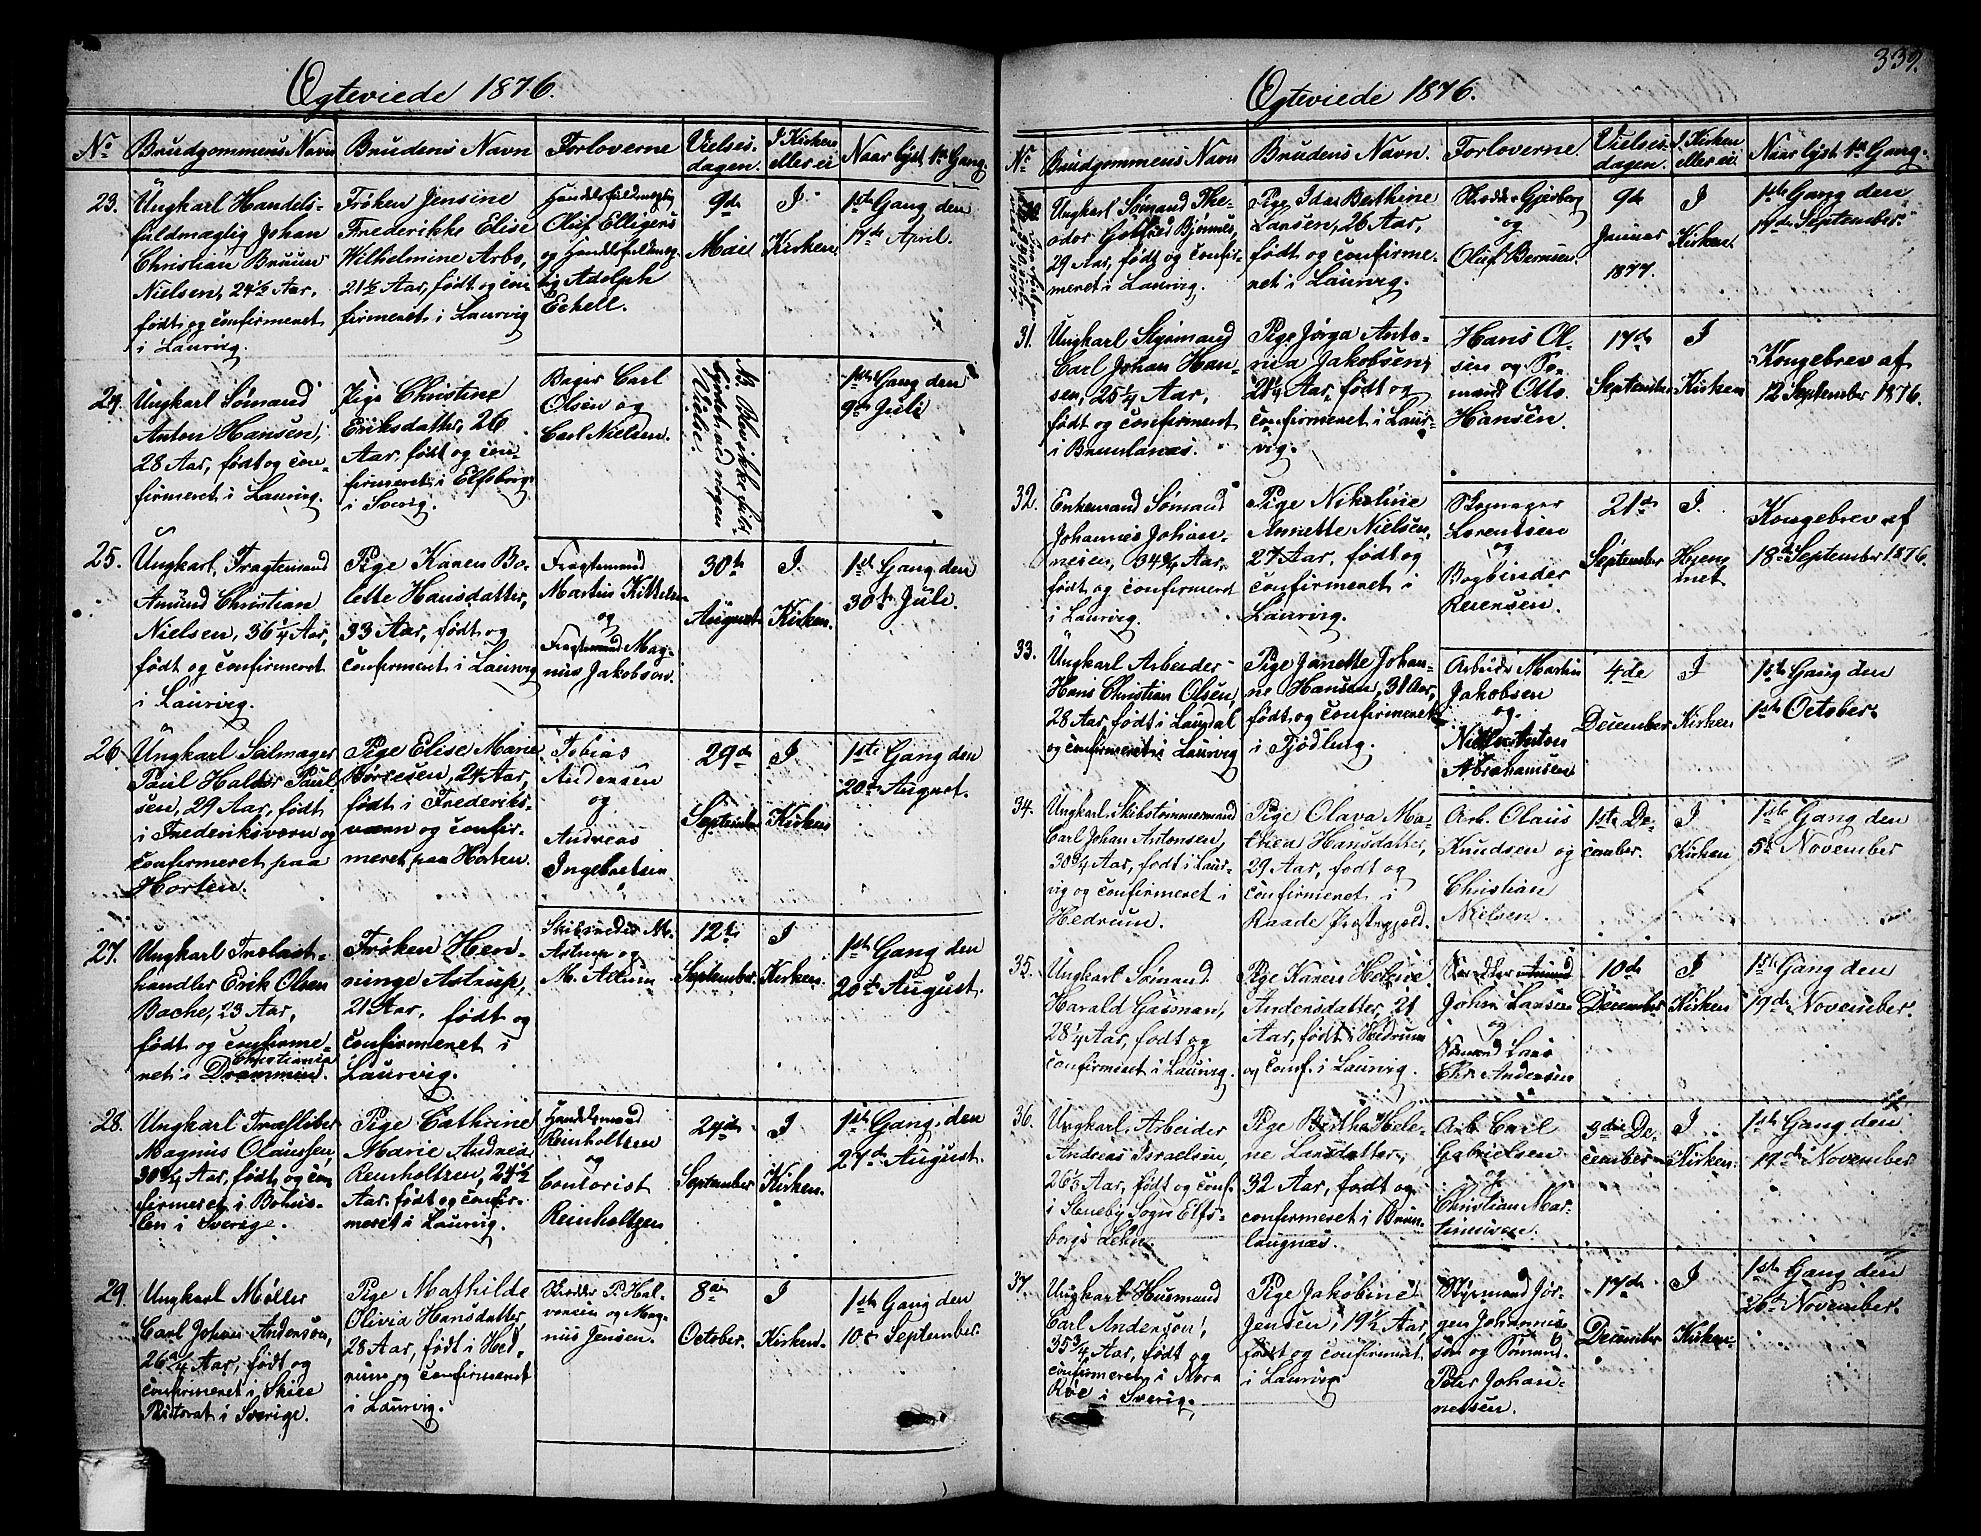 Ogteviede 1876.
No
Brudgommens Navn
Brudens Navn
Forloverne
Vielses-
dagen.
I Kirken
eller ei
Naar lyst 1ste Gang
23.
Ungkarl Handels-
fuldmægtig Johan
Christian Bruun
Nielsen, 24½ Aar,
født og confirmeret
i Laurvig.
Frøken Jensine
Frederikke Elise
Wilhelmine Arbo,
21½ Aar, født og con
firmeret i Laurvig
Handelsfuldmægtig
Oluf Elligers
og Handelsfuldmæg-
tig Adolph
Eckell.
9de
Maie
I
Kirken
1ste Gang den
17de April.
24.
Ungkarl Sømand
Anton Hansen,
28 Aar, født og con-
firmeret i Laurvig.
Pige Christine
Eriksdatter, 26
Aar, født og con-
firmeret i Elfsborg
i Sverig.
Bager Carl
Olsen og
Carl Nielsen.
NB. Blev ikke fuld-
byrdet med nogen
Vielse.
1ste Gang den
9de Juli
25.
Ungkarl, Fragtemand
Amund Christian
Nielsen, 36¼ Aar,
født og confirmeret
i Laurvig.
Pige Karen Bo-
lette Hansdatter,
33 Aar, født og
confirmeret i Laurvig
Fragtemand
Martin Kittelsen
og
Fragtemand Mag-
nus Jakobsen.
30te
August
I
Kirken.
1ste Gang den
30te Juli.
26
Ungkarl Salmager
Paul Halder Paul
sen, 29 Aar, født
i Frederiksværn og
confirmeret paa
Horten.
Pige Elise Marie
Børresen, 24 Aar,
født i Frederiks-
værn og confir-
meret paa Horten.
Tobias
Andersen
og
Andreas
Ingebretsen
29de
September
I
Kirken
1ste Gang den
20de August.
27.
Ungkarl Trælast-
handler Erik Olsen
Bache, 23 Aar,
født og confirme-
Christiania
ret i Drammen.
Frøken Hen-
ninge Astrup,
21 Aar, født og
confirmeret i
Laurvig.
Skibsreder M.
Astrup og
M. Allum
12te
September.
I
Kirken.
1ste Gang den
20de August.
28.
Ungkarl Træsliber
Magnus Olaussen,
30¾ Aar, født og con
firmeret i Bohus-
len i Sverige.
Pige Cathrine
Marie Andrea
Reinholtzen, 24½
Aar. født og confir-
meret i Laurvig.
Handelsmand
Reinholtzen
og
Contorist
Reinholtzen
24de
September
I
Kirken.
1ste Gang den
27de August.
29
Ungkarl Møller
Carl Johan Anderson,
26¾ Aar, født og
confirmeret i Skee
Pastorat i Sverige.
Pige Mathilde
Olivia Hansdatter,
28 Aar, født i Hed-
rum og confirmeret
i Laurvig.
Skrædder P. Hal-
vorsen og Mag-
nus Jensen.
8de
October.
I
Kirken.
1ste Gang den
10de September.
339.
Ogteviede 1876.
No
Brudgommens Navn
Brudens Navn.
Forloverne.
Vielses-
dagen.
I Kirken
eller ei
Naar lyst 1ste Gang.
30.
Ungkarl Sømand The-
odor Gotfried Bjønnes,
29 Aar, født og confir-
meret i Laurvig.
Pige Ida Berthine
Larsen, 26 Aar,
født og confirme-
ret i Laurvig.
Skrædder Gjerberg
og
Oluf Bernsen.
9de
Januar
1877.
I
Kirken.
1ste Gang den
17de September.
31.
Ungkarl Styrmand
Carl Johan Han-
sen, 25¼ Aar,
født og confirmeret
i Brunlanæs.
Pige Jørga Anto-
nia Jakobsen,
21¼ Aar, født og
confirmeret i Laur-
vig.
Hans Ol-
sen og Sø-
mand Otto
Hansen.
17de
September
I
Kirken
Kongebrev af
12 September 1876.
32.
Enkemand Sømand
Johannes Johan-
nesen, 34¾ Aar,
født og confirmeret
i Laurvig.
Pige Nikoline
Annette Nielsen,
27 Aar, født og
confirmeret i
Laurvig.
Skomager
Lorentsen
og
Bogbinder
Sørensen.
21de
September
I.
Hjem-
met
Kongebrev af
18de September 1876.
33.
Ungkarl Arbeider
Hans Christian Olsen,
28 Aar, født i Laugdal
og confirmeret i Laurvig
Pige Janette Johan-
ne Hansen, 31 Aar,
født og confirmeret
i Tjødling.
Arbeider Martin
Jakobsen
og
Niklas Anton
Abrahamsen
4de
December
I
Kirken
1ste Gang den
1ste October.
34.
Ungkarl Skibstømmermand
Carl Johan Antonsen,
30¾ Aar, født i Laur-
vig og confirmeret i
Hedrum.
Pige Olava Ma-
thea Hansdatter,
29 Aar, født og
confirmeret i
Raade Præstegjeld.
Arb. Olaus
Knudsen og
Christian
Nielsen.
1ste De-
cember.
I
Kirken
1ste Gang den
5te November
35.
Ungkarl Sømand
Harald Gasman,
28¼ Aar, født og
confirmeret i Laurvig.
Pige Karen Helene
Andersdatter, 21
Aar, født i Hedrum
og conf. i Laurvig.
Johan Larsen
og
Sømand Lars
Chr. Andersen
10de
December
I
Kirken
1ste Gang den
19de November.
36.
Ungkarl Arbeider
Andreas Israelsen,
26½ Aar, født og conf.
i Haneby Sogn Elfs-
borgs Lehn.
Pige Berthe Hele-
ne Larsdatter,
32 Aar, født og
confirmeret i Brun-
laugnæs.
Arb. Carl
Gabrielsen
og
Christian Mar-
tinussen.
3die De-
cember
I
Kirken.
1ste Gang den
19de November
37.
Ungkarl Husmand
Carl Anderson,
35¾ Aar, født og
confirmeret i Nora
Røe i Sverig.
Pige Jakobine
Jensen, 19½ Aar,
født og confirmeret
i Laurvig
Styrmand Jør-
gen Johannes-
søn og Sømand
Peter Johan-
nessen.
17de
December
I
Kirken.
1ste Gang den
26de November.